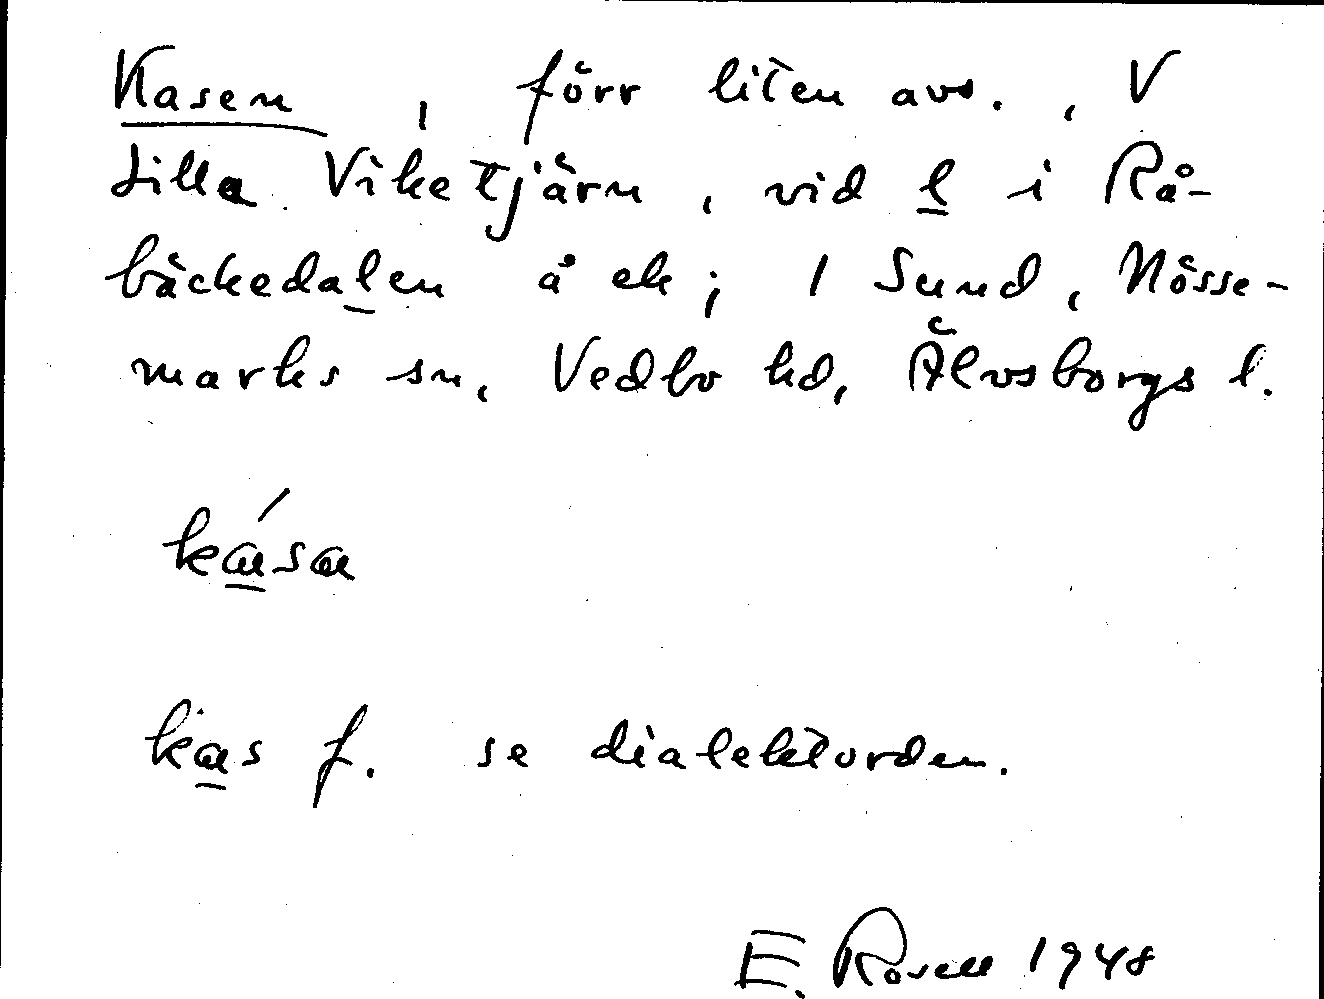 Kasen, förr liten avs., V
Lilla Viketjärn, vid l i Rå-
bäckedalen å ek; 1 Sund, Nösse-
marks sn, Vedbo hd, Älvsborgs l.
kása
kas f. se dialektorden.
E. Rosell 1948